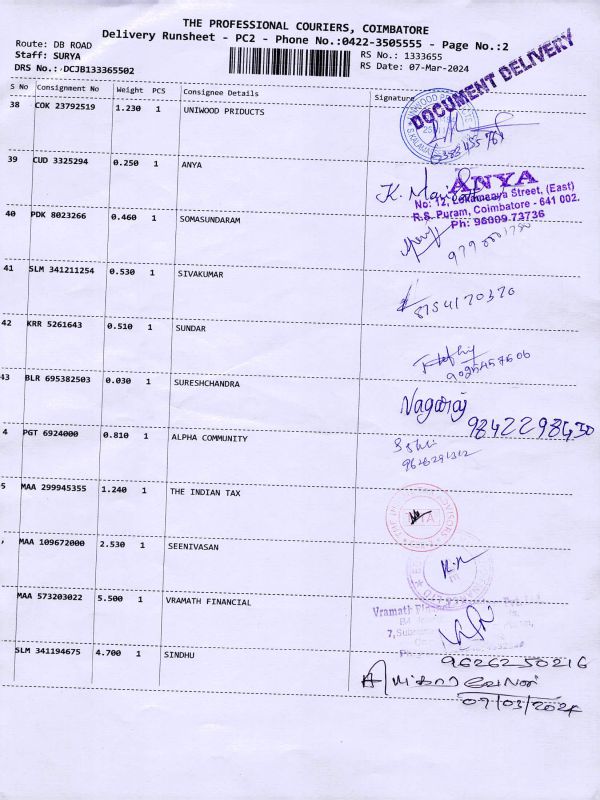 THE PROFESSIONAL COURIERS, COIMBATORE
Delivery Runsheet - PC2 - Phone No.:0422-3505555 - Page No.:2
Route: DB ROAD
Staff: SURYA
DRS No.: DCJB133365502
RS No.: 1333655
RS Date: 07-Mar-2024
S No Consignment No Weight PCS Consignee Details Signature
DOCUMENT DELIVERY
38 COK 23792519 1.230 1 UNIWOOD PRIDUCTS
39 CUD 3325294 0.250 1 ANYA
ANYA
No: 12, Lokamanya Street, (East)
R.S. Puram, Coimbatore - 641 002.
Ph: 96009 73736
40 PDK 8023266 0.460 1 SOMASUNDARAM
41 SLM 341211254 0.530 1 SIVAKUMAR
8754170370
42 KRR 5261643 0.510 1 SUNDAR
9025457606
43 BLR 695382503 0.030 1 SURESHCHANDRA
Nagaraj
9842298430
4 PGT 6924000 0.810 1 ALPHA COMMUNITY
9626291312
5 MAA 299945355 1.240 1 THE INDIAN TAX
MAA 109672000 2.530 1 SEENIVASAN
MAA 573203022 5.500 1 VRAMATH FINANCIAL
Vramath Financial
SLM 341194675 4.700 1 SINDHU
9626250216
07/03/2024